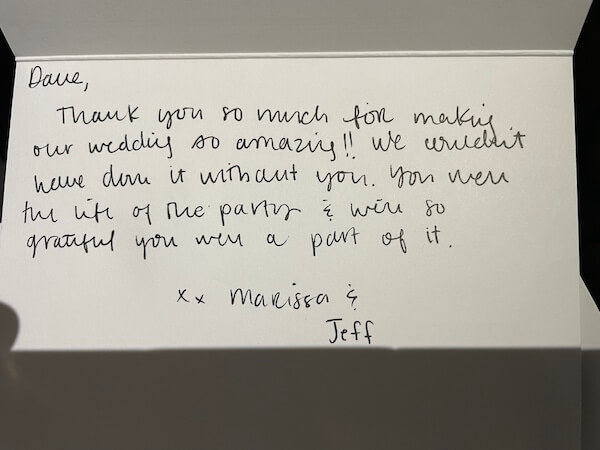 Dave,
Thank you so much for making
our wedding so amazing!! We couldn't
have done it without you. You were
the life of the party & we're so
grateful you were a part of it.
xx Marissa &
Jeff